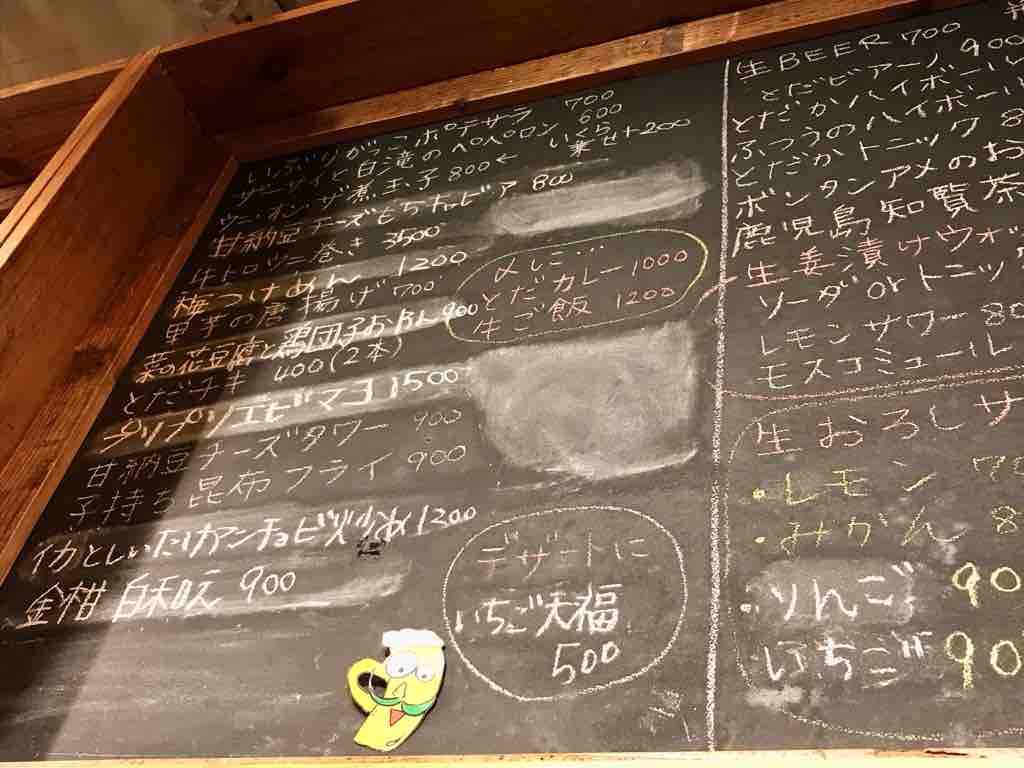 いぶりがっこポテサラ 700
ザーサイと白滝のペペロン 600
ツニ・オン・ザ煮玉子 800 ← いくら乗せ+200
甘納豆チーズもちチョビア 800
牛トロツニ巻き 3500
梅つけめん 1200
里芋の唐揚げ 700
菜の花豆腐と鶏団子おでん 900
とだチキ 400(2本)
プリプリエビマヨ 1500
甘納豆チーズタワー 900
子持ち昆布フライ 900
イカとしいたけアンチョビ炒め 1200
金柑 白和え 900
〆しに‥
とだカレー 1000
生ご飯 1200
デザートに
いちご大福
500
生BEER 700
とだビアーノ 900
とだかハイボール
ふつうのハイボール
とだかトニック 8
ボンタンアメのお
鹿児島知覧茶
生姜漬けウォッ
ソーダorトニック
レモンサワー 80
モスコミュール
生おろしサ
・レモン 70
・みかん 8
・りんご 90
いちご 90